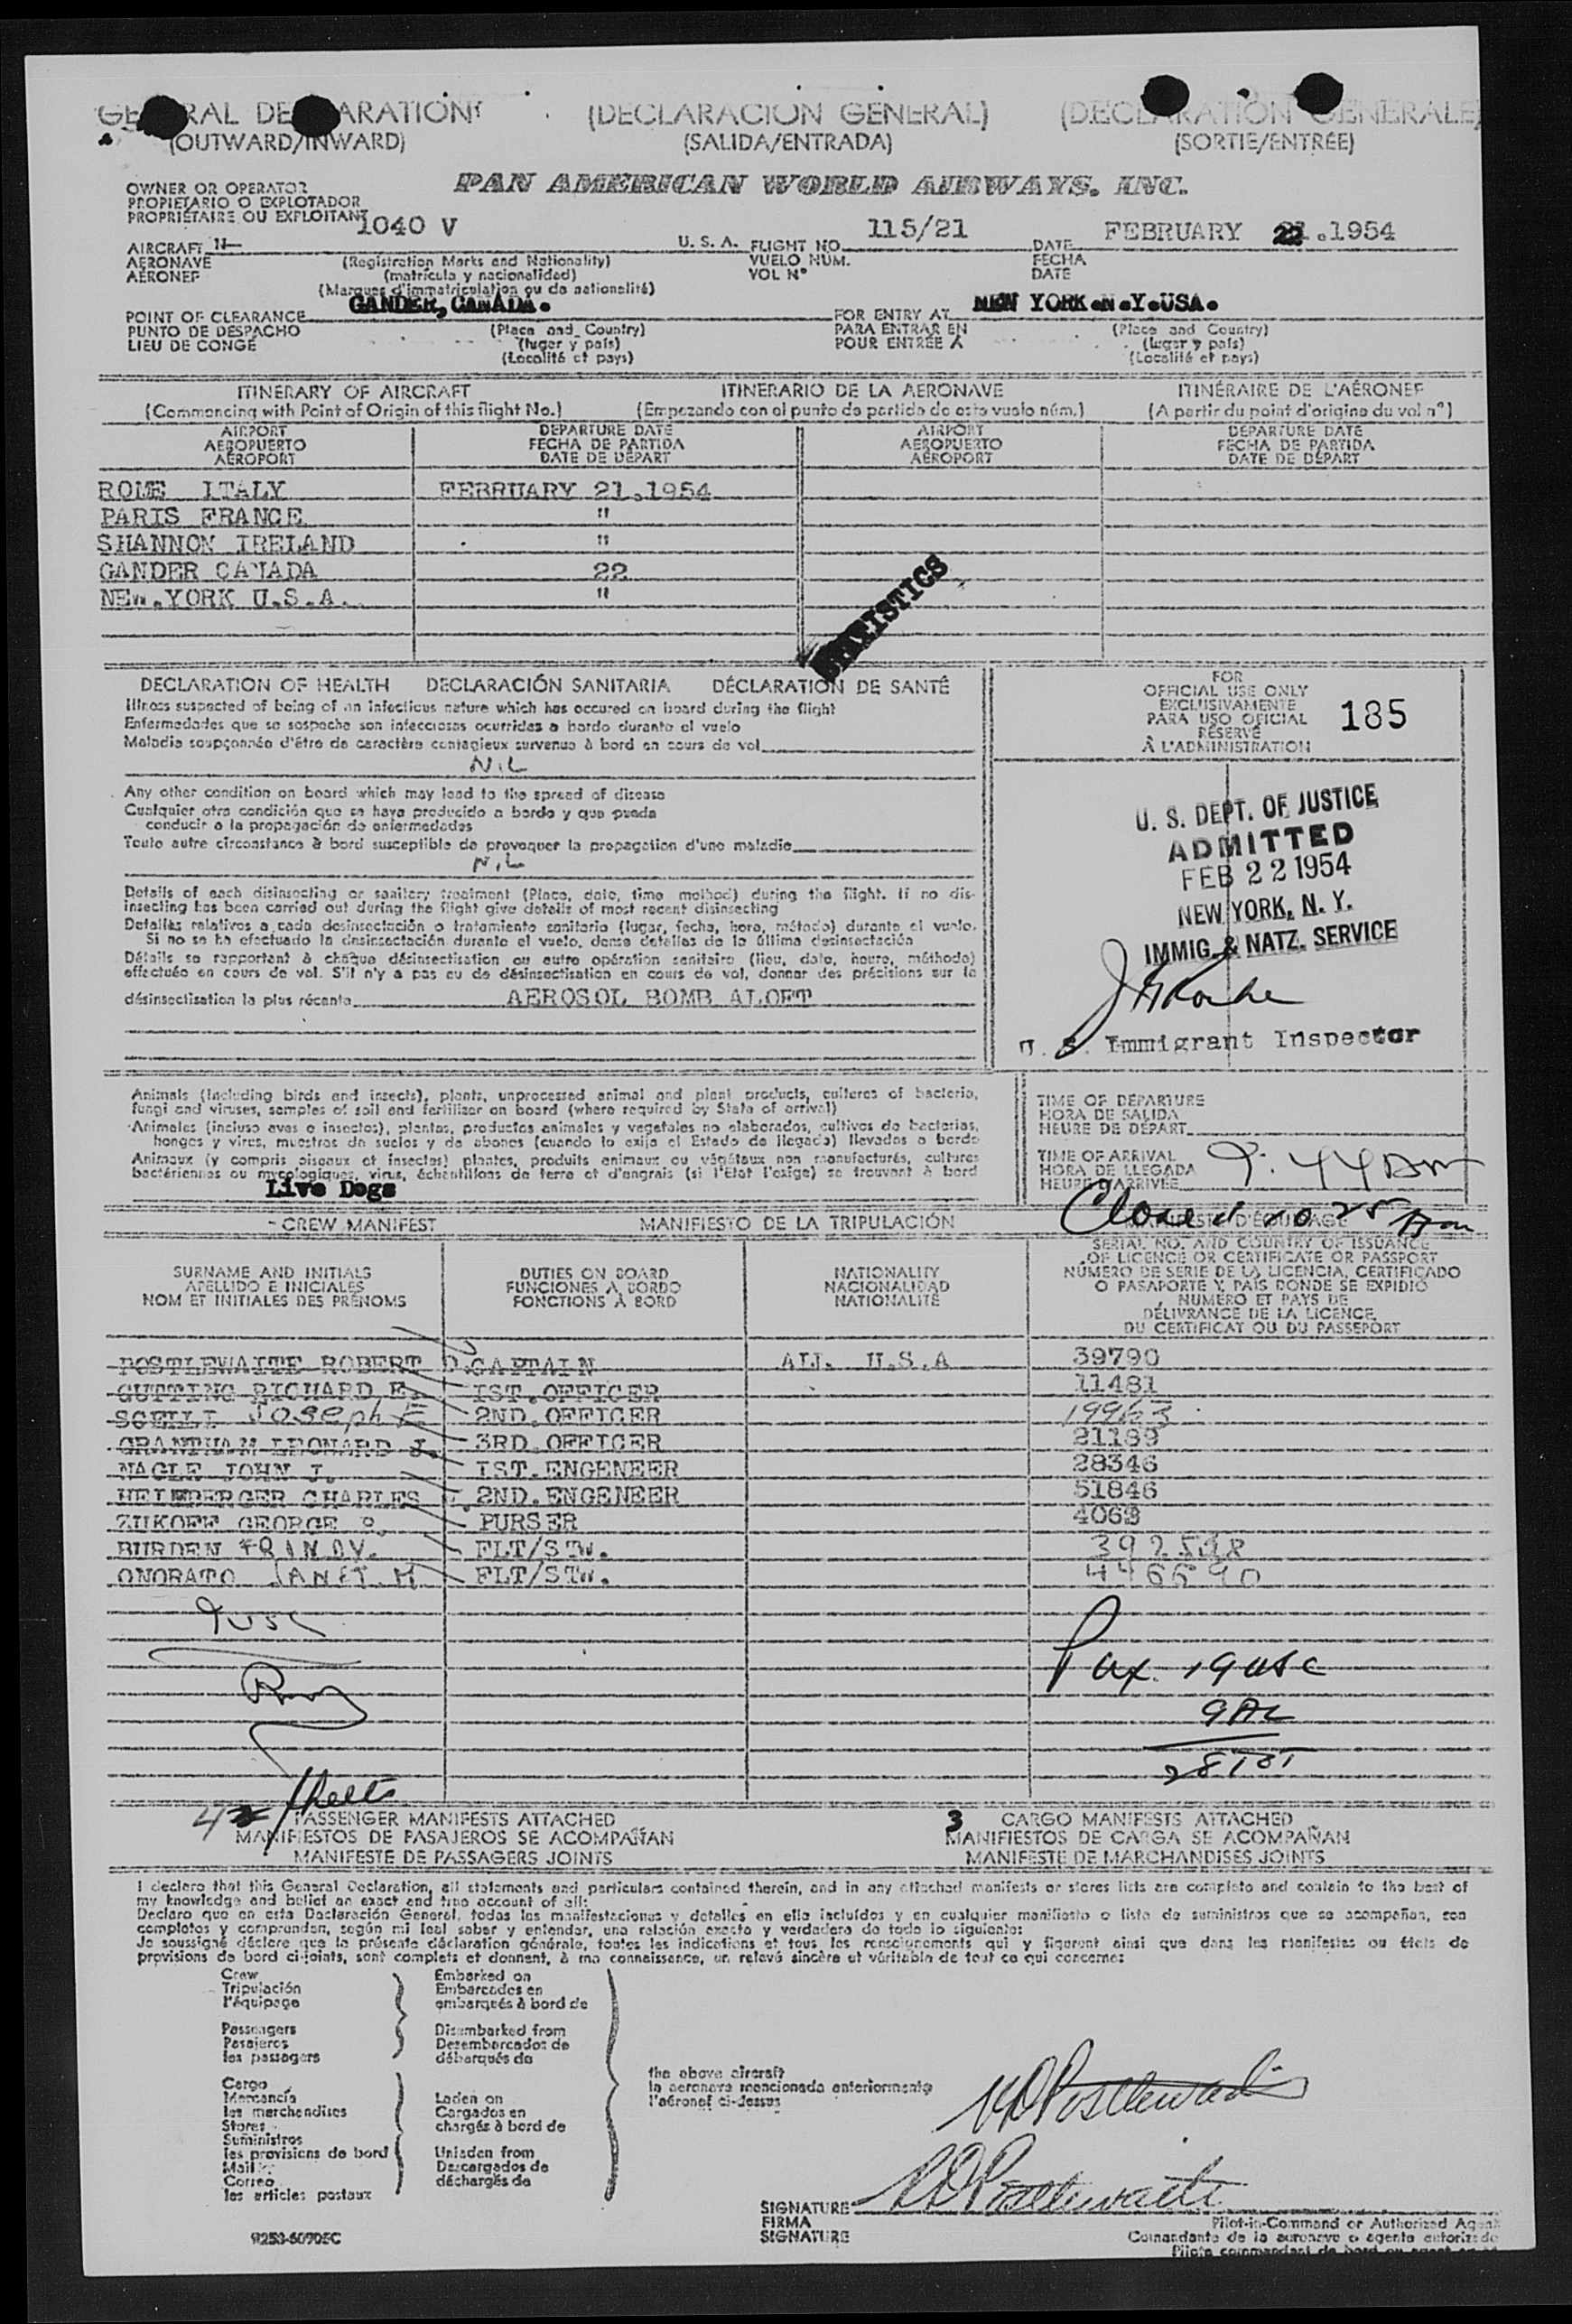 GE RAL DE ARATION
(DECLARACION GENERAL)
(DECL RATION GENERALE)
(OUTWARD/INWARD)
(SALIDA/ENTRADA)
(SORTIE/ENTRÉE)
OWNER OR OPERATOR
PROPIETARIO O EXPLOTADOR
PROPRIÉTAIRE OU EXPLOITANT
PAN AMERICAN WORLD AIRWAYS, INC.
AIRCRAFT N- 1040 V U. S. A.
AERONAVE
AÉRONEF
(Registration Marks and Nationality)
(matrícula y nacionalidad)
(Marques d'immatriculation ou de nationalité)
FLIGHT NO. 115/21
VUELO NÚM.
VOL N°
DATE FEBRUARY 22.1954
FECHA
DATE
POINT OF CLEARANCE GANDER, CANADA.
PUNTO DE DESPACHO
LIEU DE CONGÉ
(Place and Country)
(lugar y país)
(Localité et pays)
FOR ENTRY AT NEW YORK.N.Y.USA.
PARA ENTRAR EN
POUR ENTRÉE A
(Place and Country)
(lugar y país)
(Localité et pays)
ITINERARY OF AIRCRAFT
ITINERARIO DE LA AERONAVE
ITINÉRAIRE DE L'AÉRONEF
(Commencing with Point of Origin of this flight No.)
(Empezando con el punto de partida de este vuelo núm.)
(A partir du point d'origine du vol n°)
AIRPORT
AEROPUERTO
AÉROPORT
DEPARTURE DATE
FECHA DE PARTIDA
DATE DE DÉPART
AIRPORT
AEROPUERTO
AÉROPORT
DEPARTURE DATE
FECHA DE PARTIDA
DATE DE DÉPART
ROME ITALY FEBRUARY 21.1954
PARIS FRANCE "
SHANNON IRELAND "
GANDER CANADA 22
NEW.YORK U.S.A. "
STATISTICS
DECLARATION OF HEALTH DECLARACIÓN SANITARIA DÉCLARATION DE SANTÉ
Illness suspected of being of an infectious nature which has occured on board during the flight
Enfermedades que se sospecha son infecciosas ocurridas a bordo durante el vuelo
Maladie soupçonnée d'être de caractère contagieux survenue à bord en cours de vol
NIL
Any other condition on board which may lead to the spread of disease
Cualquier otra condición que se haya producido a bordo y que pueda
conducir a la propagación de enfermedades
Toute autre circonstance à bord susceptible de provoquer la propagation d'une maladie
NIL
Details of each disinsecting or sanitary treatment (Place, date, time method) during the flight. If no dis-
insecting has been carried out during the flight give details of most recent disinsecting
Detalles relativos a cada desinsectación o tratamiento sanitario (lugar, fecha, hora, método) durante el vuelo.
Si no se ha efectuado la desinsectación durante el vuelo, dense detalles de la última desinsectación
Détails se rapportant à chaque désinsectisation ou autre opération sanitaire (lieu, date, heure, méthode)
effectuée en cours de vol. S'il n'y a pas eu de désinsectisation en cours de vol, donner des précisions sur la
désinsectisation la plus récente AEROSOL BOMB ALOFT
FOR
OFFICIAL USE ONLY
EXCLUSIVAMENTE
PARA USO OFICIAL
RÉSERVÉ
À L'ADMINISTRATION
185
U. S. DEPT. OF JUSTICE
ADMITTED
FEB 22 1954
NEW YORK, N. Y.
IMMIG. & NATZ. SERVICE
U. S. Immigrant Inspector
Animals (Including birds and insects), plants, unprocessed animal and plant products, cultures of bacteria,
fungi and viruses, samples of soil and fertilizer on board (where required by State of arrival)
Animales (incluso aves e insectos), plantas, productos animales y vegetales no elaborados, cultivos de bacterias,
hongos y virus, muestras de suelos y de abonos (cuando lo exija el Estado de llegada) llevados a bordo
Animaux (y compris oiseaux et insectes) plantes, produits animaux ou végétaux non manufacturés, cultures
bactériennes ou mycologiques, virus, échantillons de terre et d'engrais (si l'État l'exige) se trouvant à bord
Live Dogs
TIME OF DEPARTURE
HORA DE SALIDA
HEURE DE DÉPART
TIME OF ARRIVAL
HORA DE LLEGADA
HEURE D'ARRIVÉE
9:44 AM
Closed 1025 Am
CREW MANIFEST
MANIFIESTO DE LA TRIPULACIÓN
D'ÉQUIPAGE
SURNAME AND INITIALS
APELLIDO E INICIALES
NOM ET INITIALES DES PRÉNOMS
DUTIES ON BOARD
FUNCIONES A BORDO
FONCTIONS À BORD
NATIONALITY
NACIONALIDAD
NATIONALITÉ
SERIAL NO. AND COUNTRY OF ISSUANCE
OF LICENCE OR CERTIFICATE OR PASSPORT
NÚMERO DE SERIE DE LA LICENCIA, CERTIFICADO
O PASAPORTE Y PAÍS DONDE SE EXPIDIÓ
NUMÉRO ET PAYS DE
DÉLIVRANCE DE LA LICENCE,
DU CERTIFICAT OU DU PASSEPORT
POSTLEWAITE ROBERT D. CAPTAIN ALL U.S.A 39790
CUTTING RICHARD E. IST.OFFICER 11481
SCELLI Joseph E 2ND.OFFICER 19963
GRANTHAM LEONARD J. 3RD.OFFICER 21189
NAGLE JOHN J. IST.ENGENEER 28346
HEIMBERGER CHARLES 2ND.ENGENEER 51846
ZUKOFF GEORGE P. PURSER 4063
BURDEN FLT/STW. 392548
ONORATO JANET M FLT/STW. 446690
9 USC
Pax. 19 USC
9 AL
28 TOT
4 sheets
PASSENGER MANIFESTS ATTACHED
MANIFIESTOS DE PASAJEROS SE ACOMPAÑAN
MANIFESTE DE PASSAGERS JOINTS
3 CARGO MANIFESTS ATTACHED
MANIFIESTOS DE CARGA SE ACOMPAÑAN
MANIFESTE DE MARCHANDISES JOINTS
I declare that this General Declaration, all statements and particulars contained therein, and in any attached manifests or stores lists are complete and contain to the best of
my knowledge and belief an exact and true account of all:
Declaro que en esta Declaración General, todas las manifestaciones y detalles en ella incluídos y en cualquier manifiesto o lista de suministros que se acompañan, son
completos y comprenden, según mi leal saber y entender, una relación exacta y verdadera de todo lo siguiente:
Je soussigné déclare que la présente déclaration générale, toutes les indications et tous les renseignements qui y figurent ainsi que dans les manifestes ou états de
provisions de bord ci-joints, sont complets et donnent, à ma connaissance, un relevé sincère et véritable de tout ce qui concerne:
Crew
Tripulación
l'équipage
Passengers
Pasajeros
les passagers
Cargo
Mercancía
les marchandises
Stores
Suministros
les provisions de bord
Mail
Correo
les articles postaux
Embarked on
Embarcados en
embarqués à bord de
Disembarked from
Desembarcados de
débarqués de
Laden on
Cargados en
chargés à bord de
Unladen from
Descargados de
déchargés de
the above aircraft
la aeronave mencionada anteriormente
l'aéronef ci-dessus
RD Postlewaite
SIGNATURE RD Postlewaite
FIRMA
SIGNATURE
Pilot-in-Command or Authorized Agent
Comandante de la aeronave o agente autorizado
Pilote commandant de bord ou agent
R253-60705C